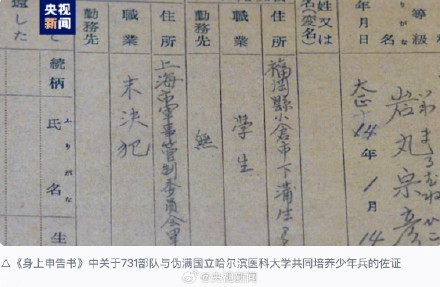 央视新闻
等級
名
岩丸泉彥
年月日
大正14年1月14
姓又は
(変名)
住所
福岡縣小倉市下蒲生
職業
学生
勤務先
無
住所
上海市軍事管制委員会軍
職業
未決犯
勤務先
還した
続柄
ふりがな
氏名
生
△《身上申告书》中关于731部队与伪满国立哈尔滨医科大学共同培养少年兵的佐证
@央视新闻